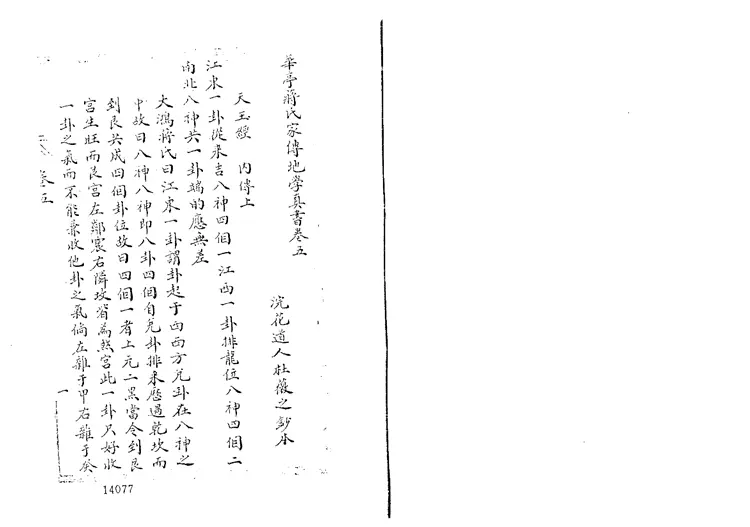 華亭蔣氏家傳地學真書卷五
浣花道人杜薇之鈔本
天玉經　內傳上
江東一卦從來吉八神四個一江西一卦排龍位八神四個二
南北八神共一卦端的應無差
大鴻蔣氏曰江東一卦謂卦起于西西方兌卦在八神之
中故曰八神八神即八卦四個自兌卦排來歷過乾坎而
到艮共成四個卦位故曰四個一者上元二黑當令到艮
宮生旺而艮宮左鄰震右隣坎皆為煞宮此一卦只好收
一卦之氣而不能兼收他卦之氣倘左雜于甲右雜于癸
卷五
一
14077